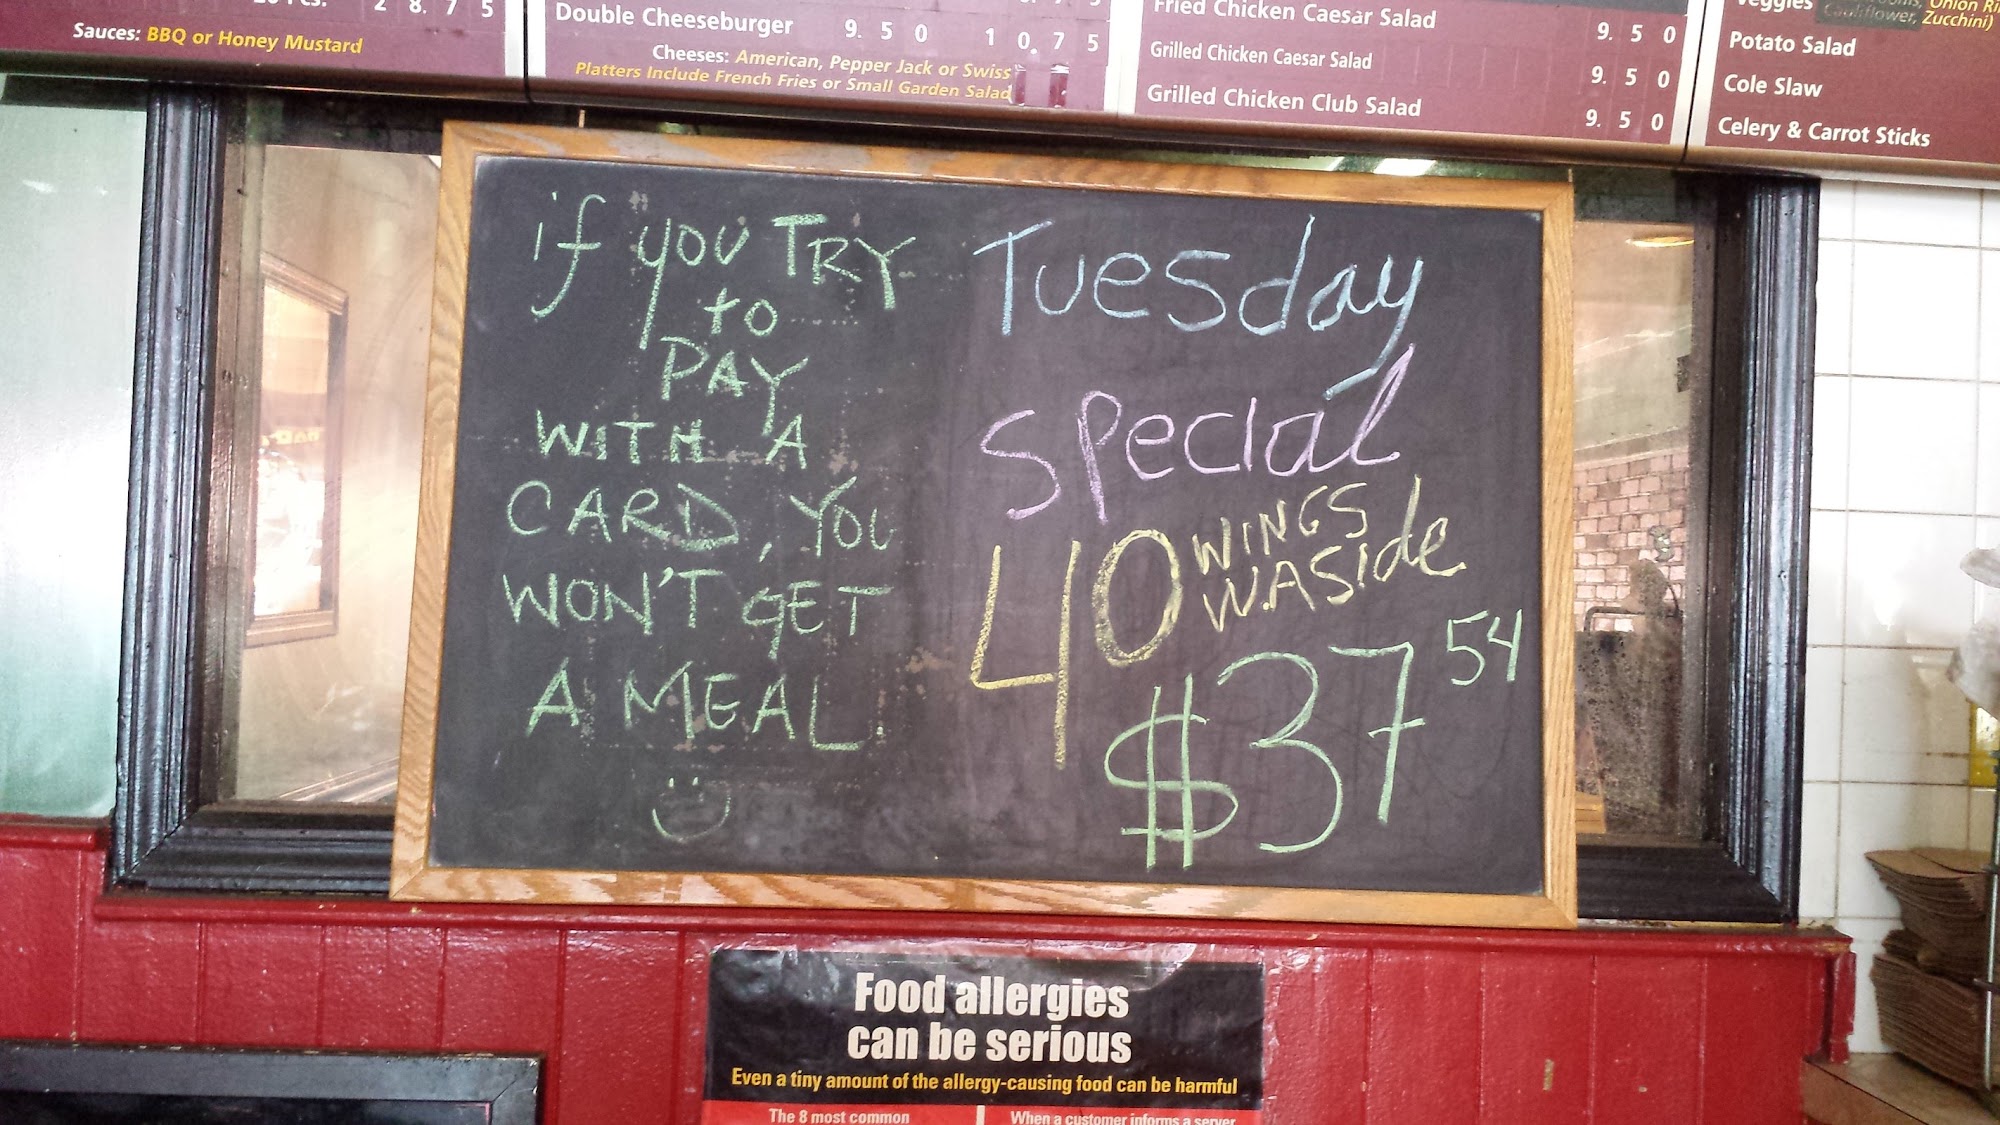 2 8. 7 5
Sauces: BBQ or Honey Mustard
Double Cheeseburger 9. 5 0 1 0. 7 5
Cheeses: American, Pepper Jack or Swiss
Platters Include French Fries or Small Garden Salad
Fried Chicken Caesar Salad 9. 5 0
Grilled Chicken Caesar Salad 9. 5 0
Grilled Chicken Club Salad 9. 5 0
Veggies
Cauliflower, Zucchini)
Potato Salad
Cole Slaw
Celery & Carrot Sticks
if you TRY
to
PAY
WITH A
CARD, YOU
WON'T GET
A MEAL
Tuesday
Special
40 WINGS
W.A Side
$37 54
Food allergies
can be serious
Even a tiny amount of the allergy-causing food can be harmful
The 8 most common
When a customer informs a server